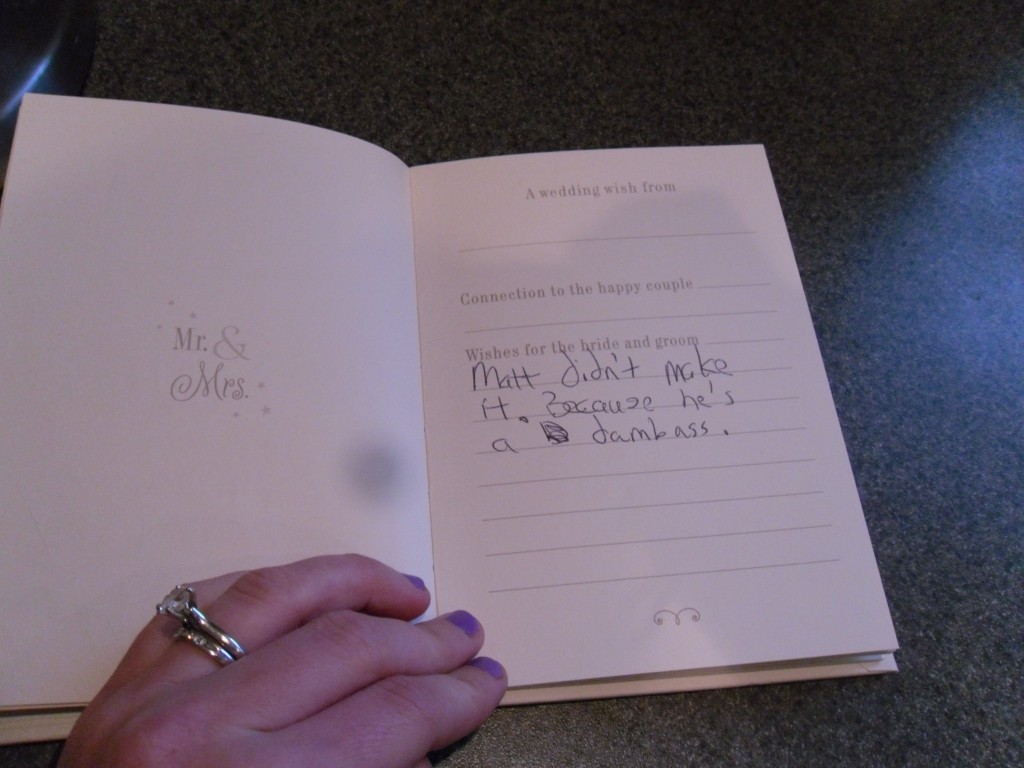 Mr. &
Mrs.
A wedding wish from
Connection to the happy couple
Wishes for the bride and groom
Matt didn't make
it. Because he's
a dambass.